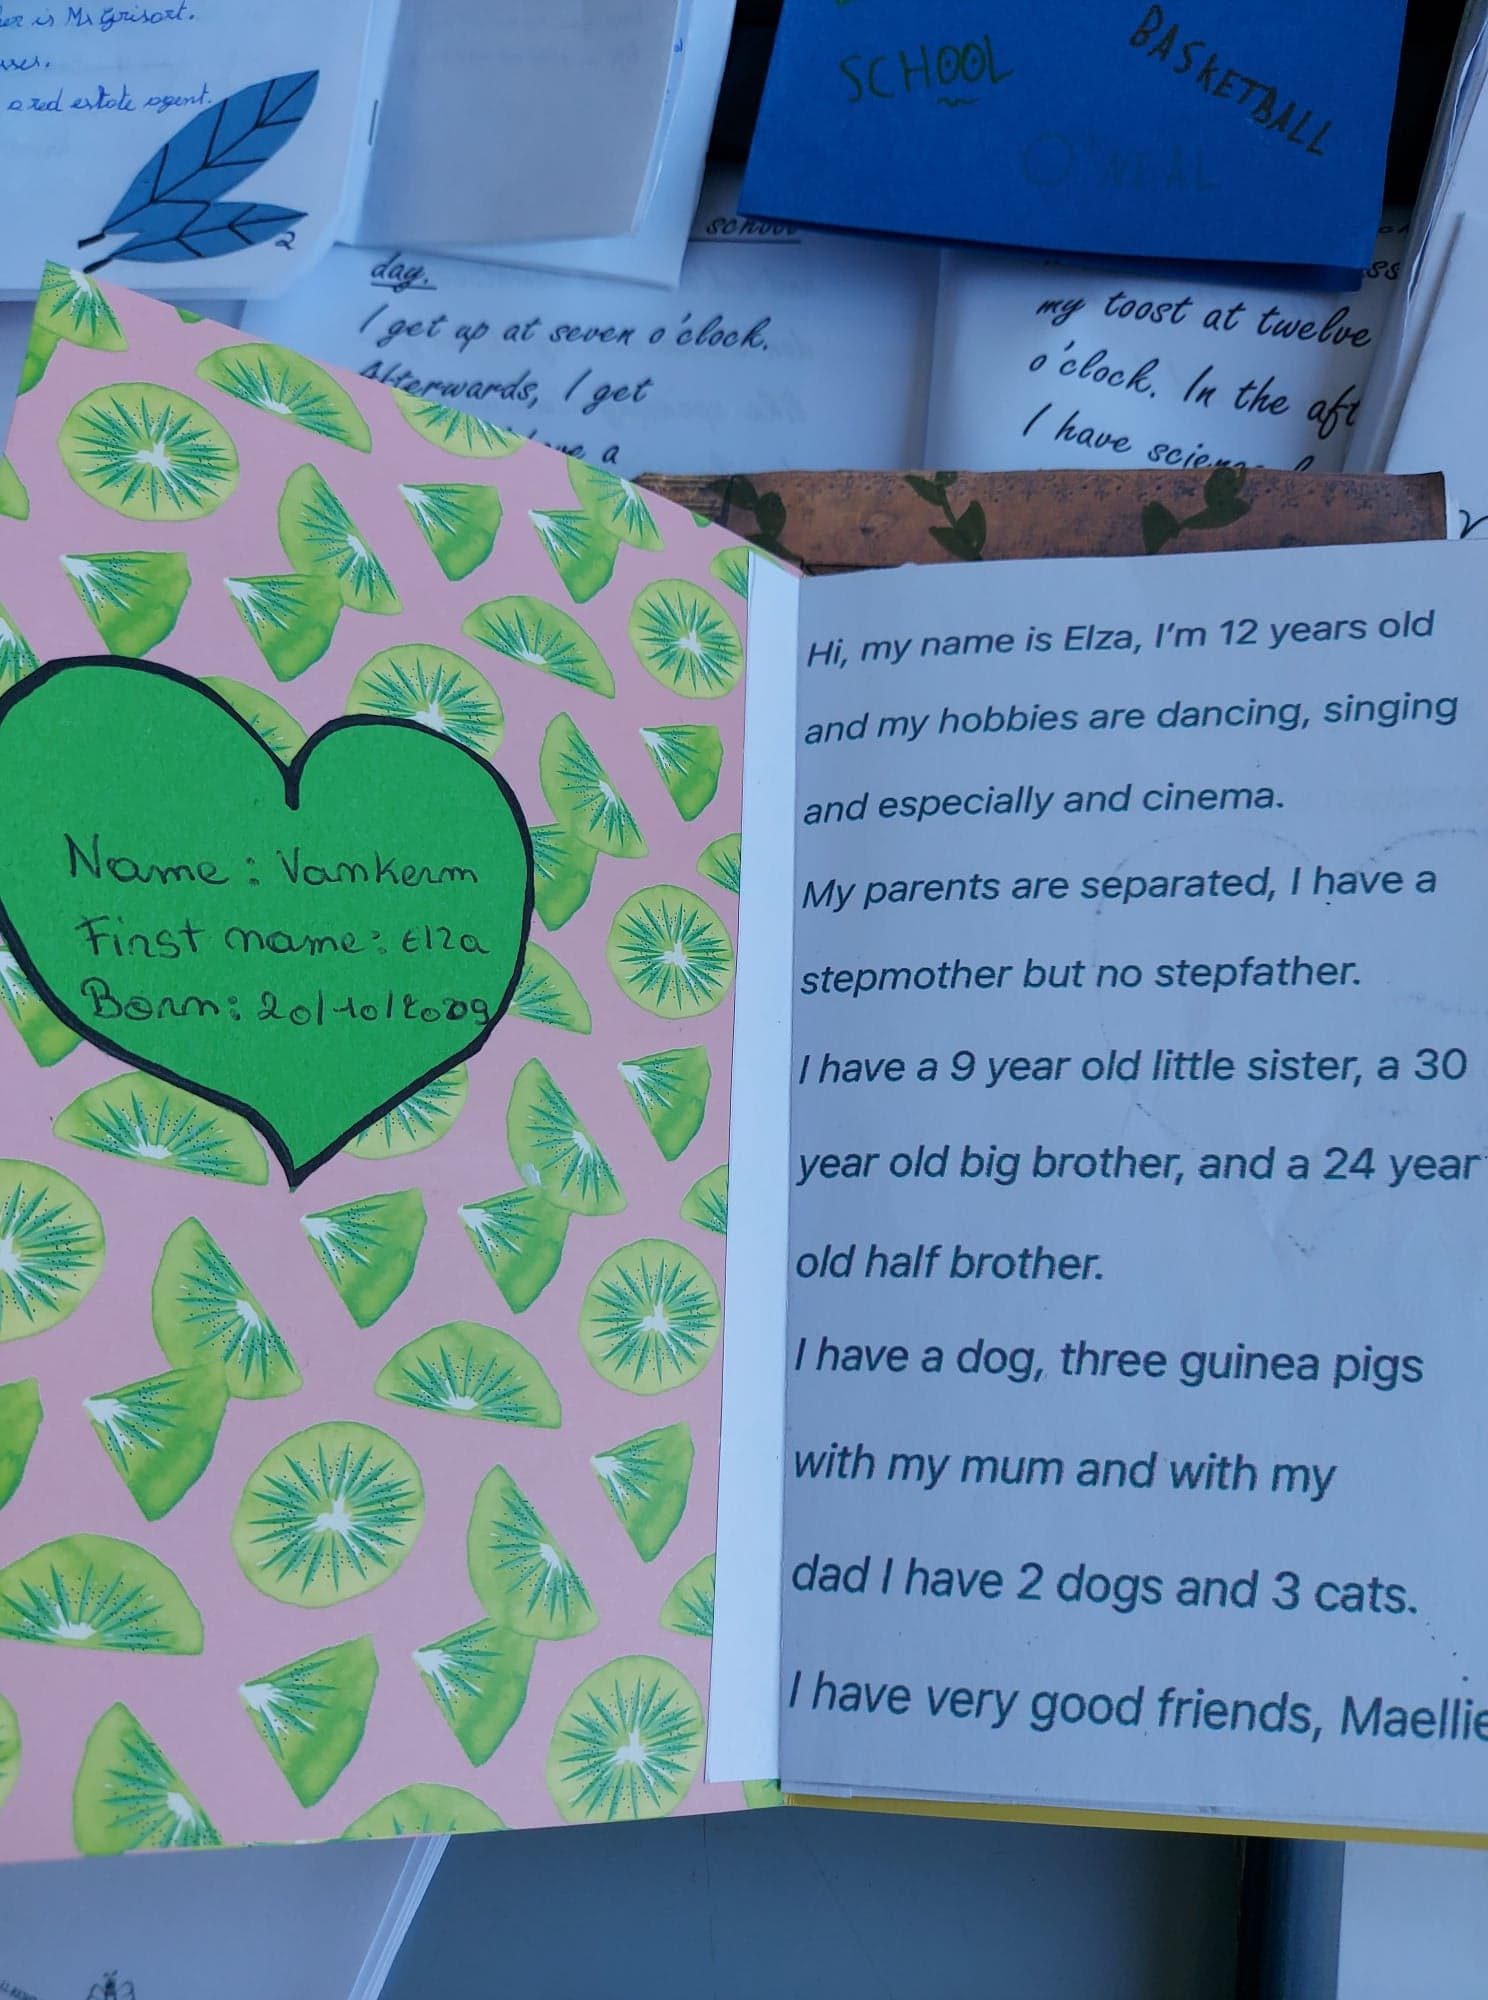 is Mr Grisort.
estate agent.
2
SCHOOL
BASKETBALL
O'NEAL
school
day.
I get up at seven o'clock.
Afterwards, I get
a
my toost at twelve
o'clock. In the aft
I have scien
Name : Vamkerm
First name : Elza
Born : 20/10/2009
Hi, my name is Elza, I'm 12 years old
and my hobbies are dancing, singing
and especially and cinema.
My parents are separated, I have a
stepmother but no stepfather.
I have a 9 year old little sister, a 30
year old big brother, and a 24 year
old half brother.
I have a dog, three guinea pigs
with my mum and with my
dad I have 2 dogs and 3 cats.
I have very good friends, Maellie